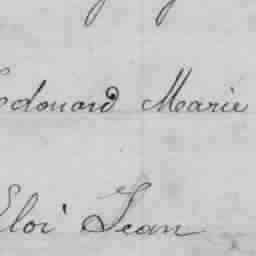 Edouard Marie
Eloi Jean